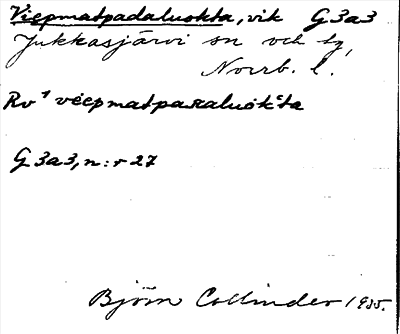 Viepmatpadaluokta, vik G 3a3
Jukkasjärvi sn och tg,
Norrb. l.
Rv¹ vėepmatpaʀaluok̀ta
G 3a3, n:r 27
Björn Collinder 1935.